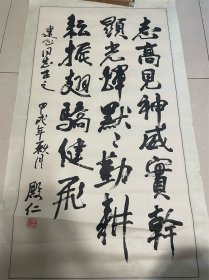 志高見神威實幹
顯光輝默〻勤耕
耘振翅驕健飛
建飞同志正之
甲戌年秋月 殿仁